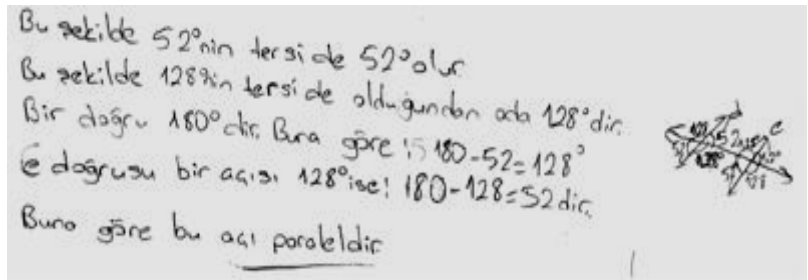 Bu şekilde 52°nin tersi de 52° olur.
Bu şekilde 128'in tersi de olduğundan oda 128° dir.
Bir doğru 180° dir. Buna göre; 180-52=128°
e doğrusu bir açısı 128° ise; 180-128=52 dir.
Buna göre bu açı paraleldir
d e